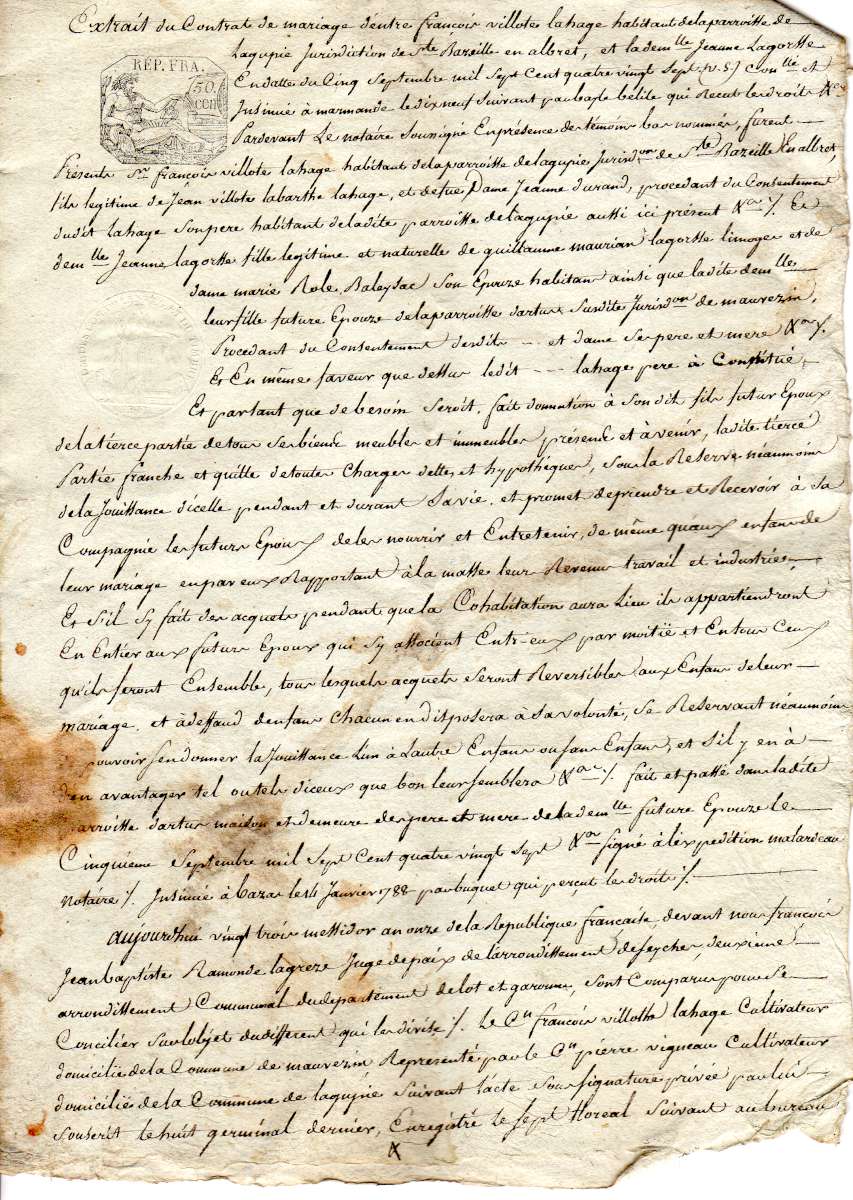 Extrait du Contrat de mariage d'entre françois villotes lahage habitant delaparroitte de
Lagupie Jurisdiction de Ste Bazeille en albret, et lademlle Jeanne Lagortte
RÉP. FRA.
50
CEN
En datte du Cinq Septembre mil Sept Cent quatre vingt Sept (v.S.) Conllé et
Insinué à marmande le dix neuf Suivant par bayle belile qui Recut le droit &ca
Pardevant Le notaire Soussigné En présence des témoins bas nommés, furent
Présents Sr françois villote lahage habitant delaparroitte delagupie Jurisdon de Ste Bazeille En albret,
fils legitime de Jéan villote labarthe lahage, et defue Dame Jeanne durand, procedant du Consentement
dudit Lahage Son pere habitant deladite parroitte delagupie aussi ici présent &a %. Et
demlle Jeanne lagortte fille legitime et naturelle de guillaume maurian lagortte limoges et de
dame marie Role Baleysac Son Epouze habitans ainsi que ladite demlle
leur fille future Epouze delaparroitte dartus Susdite Jurisdon de mauvezin,
Procedant du Consentement desdits -- et dame Ses pere et mere &a %.
Et En même faveur que dessus ledit --- lahage pere à Constitué,
Et partant que de besoin Seroit, fait donnation à Son dit fils futur Epoux
delatierce partie de tous Ses biens meubles et immeubles présens et à venir, ladite tierce
Partie franche et quitte detoutes Charges dettes et hypothéques, Sous la Reserve néaumoins
dela Jouittance dicelle pendant et durant Savie. et promet deprendre et Recevoir à Sa
Compagnie les futurs Epoux deles nourrir et Entretenir, de même quaux enfans de
leur mariage en par eux Rapportant àla masse leur Revenu travail et industrie,
Et S'il Sy fait des acquets pendant que la Cohabitation aura Lieu ils appartiendront
En Entier aux futurs Epoux qui Sy attocient Entr-eux par moitié et Entous Ceux
qu'ils feront Ensemble, tous lesquels acquets Seront Reversibles aux Enfans deleur
mariage. et àdeffaud denfans Chacun en disposera à Savolonté, Se Reservant néaumoins
pouvoir Sendonner la Jouittance Lun à Lautre Enfans ou Sans Enfans, et S'il y en à
d'en avantager tel ou tels diceux que bon leur Semblera &a %. fait et patté dans ladite
parroitte dartus maison et demeure des pere et mere dela demlle future Epouze le
Cinquieme Septembre mil Sept Cent quatre vingt Sept &a Signé à léxpedition malardeau
notaire %. Insinué à bazas le 14 Janvier 1788 par buquet qui perçut le droit %.
aujourdhui vingt trois mettidor an onze dela Republique française, devant nous françois
Jean baptiste Ramonde lagreze Juge depaix de larrondittement deSeyches, deuxieme
arrondittement Communal dudepartement delot et garonne, Sont Comparus pour Se
Concilier Sur lobjet dudifferent qui les divise %. Le Cen françois villotte lahage Cultivateur
domicilié dela Commune de mauvezin Représenté par le Cen pierre vigneau Cultivateur
domicilié dela Commune de lagupie Suivant lacte Sous Signature privée par lui
Souscrit le huit germinal dernier, Enregistré le Sept floreal Suivant au bureau